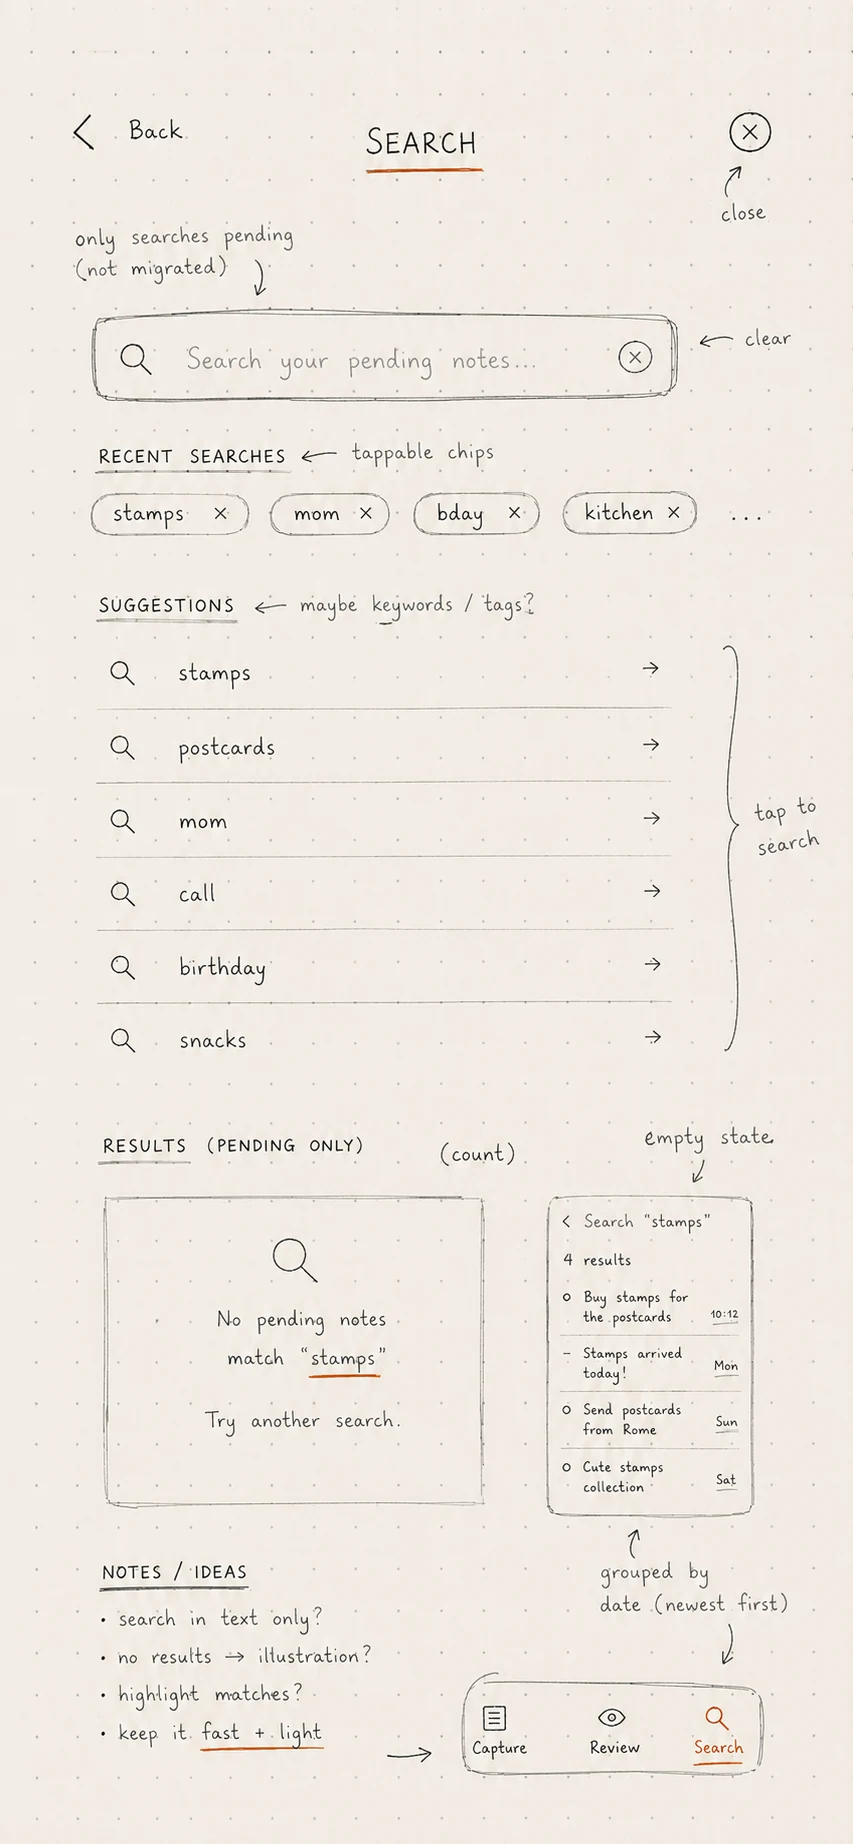 Back
SEARCH
close
only searches pending
(not migrated)
Search your pending notes...
clear
RECENT SEARCHES
tappable chips
stamps ×
mom ×
bday ×
kitchen ×
...
SUGGESTIONS
maybe keywords / tags?
stamps →
postcards →
mom →
call →
birthday →
snacks →
tap to
search
RESULTS (PENDING ONLY)
(count)
No pending notes
match “stamps”
Try another search.
empty state
< Search “stamps”
4 results
Buy stamps for
the postcards 10:12
– Stamps arrived
today! Mon
Send postcards
from Rome Sun
Cute stamps
collection Sat
grouped by
date (newest first)
NOTES / IDEAS
• search in text only?
• no results → illustration?
• highlight matches?
• keep it fast + light
Capture
Review
Search